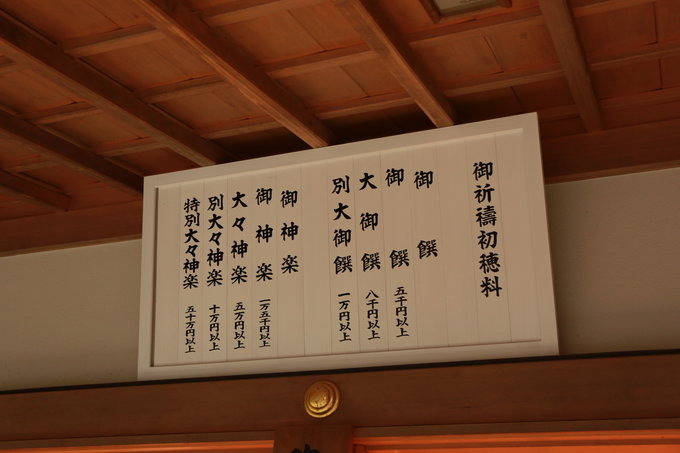 御祈禱初穂料
御饌
御饌 五千円以上
大御饌 八千円以上
別大御饌 一万円以上
御神楽
御神楽 一万五千円以上
大々神楽 五万円以上
別大々神楽 十万円以上
特別大々神楽 五十万円以上